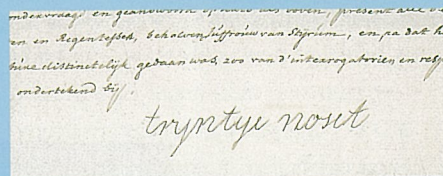 ondervraagd en geandwoord op dato als boven, present alle
en en Regentessen, behalven Juffrouw van Styrum, en, na dat h
distinctelyk gedaan was, zoo van d'interrogatorien en resp
ondertekend by.
tryntye noset